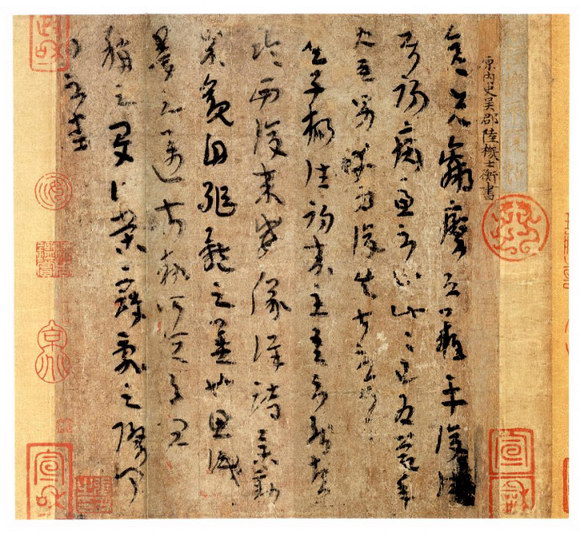 晉內史吳郡陸機士衡書
彥先羸瘵恐難平復
屬初病慮不止此此已為慶承
使唯男幸為復失前憂耳
子楊往初來主吾不能盡
臨西復來威儀詳跱舉動
成觀自軀體之美也思識
量之邁前執所恒有宜
稱之夏伯榮寇亂之際聞
問不悉